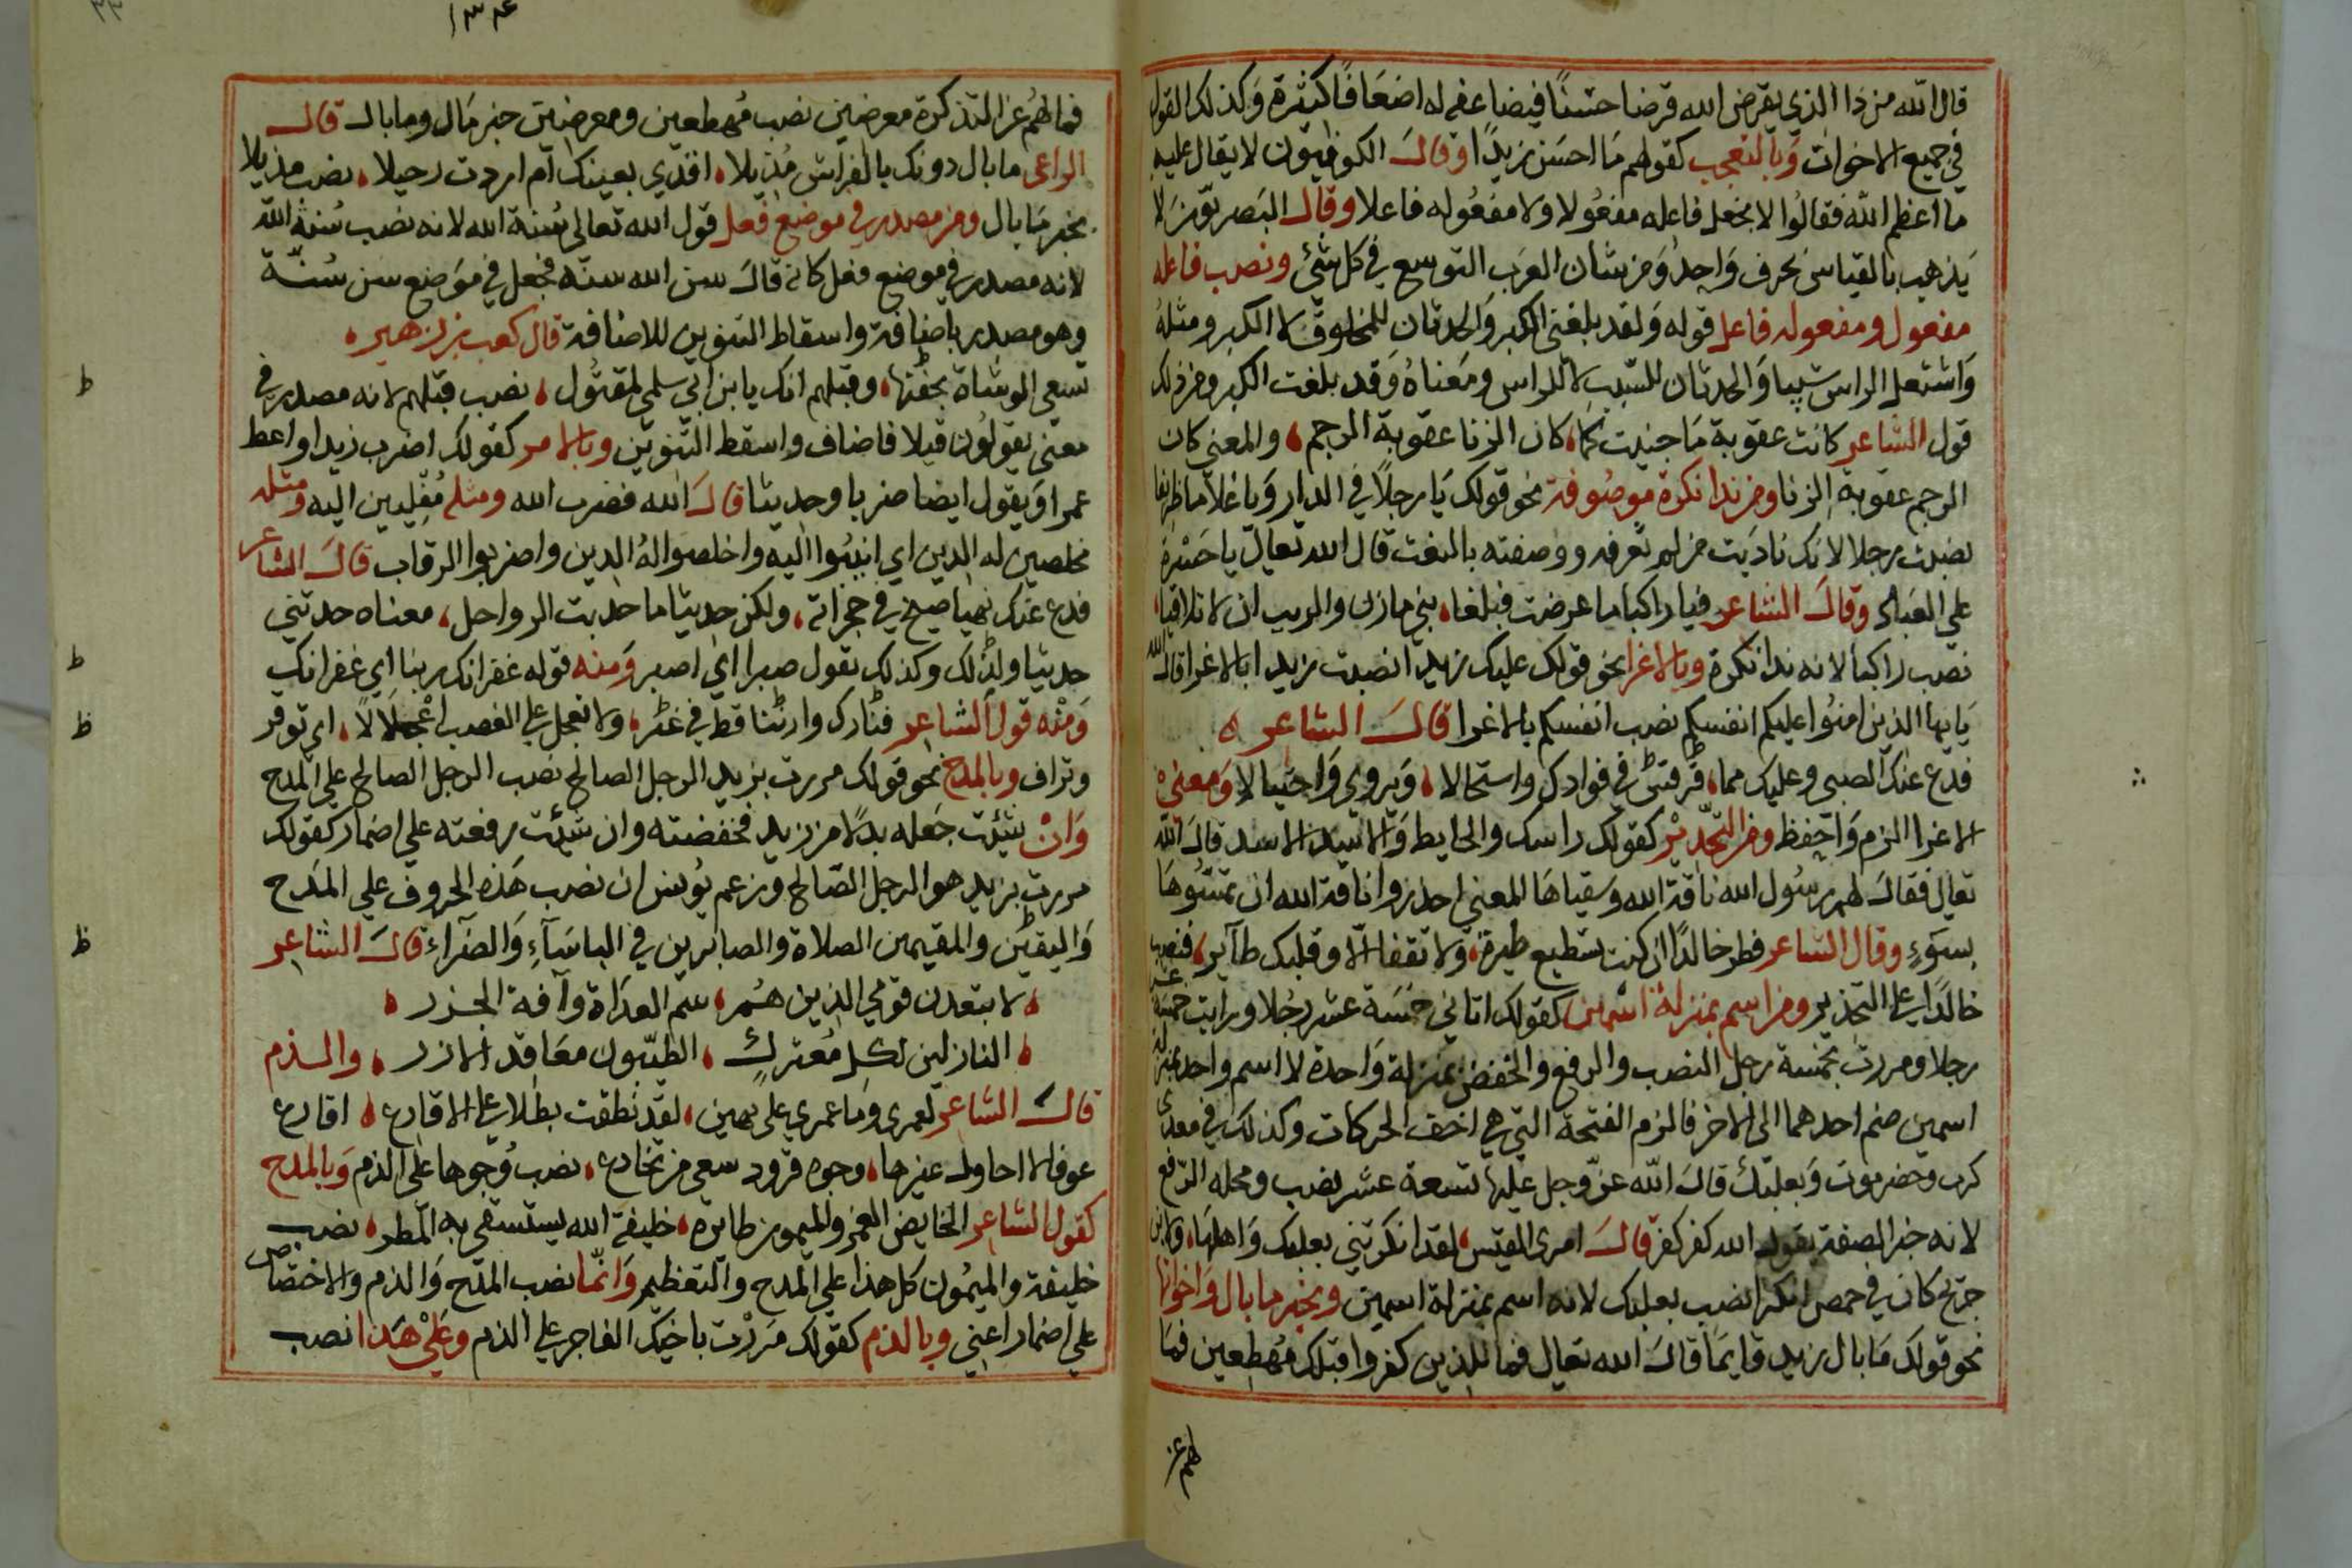 قال الله من ذا الذي يقرض الله قرضا حسنًا فيضاعفه له اضعَافًا كثيرة وَكذلك القول
في جميع الاخوات وَبالتعجب كقولهم مَا احسَن زيدًا وقالَ الكوفيون لا يقال عليه
ما اعظم اللهَ فقالُوا لا يجعل فاعله مفعُولا وَلا مفعُوله فاعلا وقال البَصريّون لا
يَذهب بالقياس بحرف وَاحِد وَمن شان العرَب التوسع في كل شئ ونصب فاعله
مفعول ومفعوله فاعل قوله وَلقد بلغني الكبر وَالحدثان للمخلوق لا الكبر ومثلهُ
وَاشتعل الراس شيبا وَالحدثان للشيب لا للراس ومَعناهُ وَقد بلغت الكبر ومن ذلك
قول الشاعر كانت عقوبة مَا جنيت كما، كان الزنا عقوبة الرجم، والمعنى كان
الرجم عقوبة الزنا ومن ندا نكرة موصُوفة نحو قولك يَا رجلاً في الدار وَيا غلاما ظريفا
نصبت رجلا لانك ناديَت من لم تعرفه ووصفته بالنعت قال الله تعالى يا حَسْرة
على العبَاد وقالَ الشاعر فيا راكبا اما عرضت فبلغا، بني مازن والريب ان لا تلاقيا،
نصب راكبا لانه ندا نكرة وبالاغرا نحو قولك عليك زيدًا نصبت زيدا بالاغرا قال الله
يَايها الذين امنوُا عليكم انفسكم نصب انفسكم بالاغرا قالَ الشاعر ه
فدع عنك الصبى وعليك مما، في فوادك واستحالا، وَيروي وَاحتيالا وَمعنى
الاغرا الزم وَاحفظ ومن التحذير كقولك راسك والحايط وَالاسدَ الاسد قالَ الله
تعالى فقالَ لهم رسُول الله ناقة الله وَسقياهَا المعنى احذروا ناقة الله ان تمسّوُهَا
بسَوءٍ وقال الشاعر فطر خالدًا ان كنت تسطيع طيرة، وَلا تقفا الّا وقلبك طآير، فنصب
خالدًا على التحذير ومن اسم بمنزلة اسمين كقولك اتاني خمسَة عشر رجُلا ورايت خمسة عشر
رجلا ومررت بخمسة رجل النصب والرفع والخفض بمنزلة وَاحدة لا اسم واحد بمنزلة
اسمين ضم احدهما الى الاخر فالزم الفتحة التي هي اخف الحركات وكذلك في معدى
كرب وحضرموت وَبعلبكَ قالَ الله عزّ وجل عليها تسعة عشر نصب ومحله الرّفع
لانه خبر الصفة يقول الله قالَ امرى القيس، لقد انكرتني بعلبك وَاهلهَا، ولابن
جريج كان في حمص انكرا نصب بعلبك لانه اسم بمنزلة اسمين وبخبر ما بال وَاخواتها
نحو قولك مَا بال زيد قايمًا قالَ الله تعالى فما للذين كفروا قبلك مُهطعين فمَا
لهم عن
١٣٤
فما لهُم عن التذكرة معرضين نصب مُهطعين ومعرضين خبر مَال وما بال قال
الراعى ما بال دونك بالفراش مُذيلا، اقذي بعينك ام اردت رحيلا، نصب مذيلا
بخبر مَا بال ومن مصدر في موضع فعل قول الله تعالى سُنة الله لانه نصب سُنة الله
لانه مصدر في موضع فعل كانه قالَ سن الله سنّه فجعل في موَضع سن سُنّة
وهو مصدر باضافة واسقاط التنوين للاضافة قال كعب بن زهير ه
تسعى الوشاة بجفنها، وقيلهم انك يابن ابي سلمى لمقتُول، نصب قيلهم لانه مصدر في
معنى يقولوُن قيلا فاضاف واسقط التنوين وبالامر كقولك اضرب زيدا واعط
عمرا وَيقول ايضا ضربا وحديثا قالَ الله فضرب الله ومثله مُنيبين اليه ومثله
مخلصين له الدين اي انيبُوا اليه واخلصوا لهُ الدين واضربوا الرقاب قالَ الشاعر
فدع عنك نهبا صيح في حجراته، ولكن حديثا ما حديث الرواحل، معناه حدثني
حديثا وكذلك وكذلك تقول صبرا اي اصبر وَمنه قوله غفرانك ربنا اي غفرانك
وَمنْه قول الشاعر، ولا تعجل على الغصب، اي توقر
وتراف وبالمدح نحو قولك مررت بزيد الرجل الصالح نصب الرجل الصالح على المدح
وَانْ شيئت جَعله بدلًا من زيد فخفضته وان شيئت رفعته على اضمار كقولك
مررت بزيد هو الرجل الصّالح وزعم يُونس ان نصب هَذه الحروف على المَدح
وَاليقيَن والمقيمين الصلاة والصابرين في الباسَآءِ وَالضرآء قالَ الشاعر
، لا يبعدن قومي الذين هـُـم، سم العدَاة وآفة الجـزر،
، النازلين لكل مُعتركٍ، الطيّبون معَاقد الازر، والـذم
قال الشاعر لعمرى وَما عمري على بهين، لقد نطقت بطلا على الاقارع، اقارع
عوف لا احاول غيرها، وجوه قرود سعى من تخادع، نصب وُجوها على الذم وَبالمدح
كقول الشاعر الخايض الغمر والميمون طايره، خليفة الله يستسقى به المطر، نصب
خليفة والميمُون كل هذا على المدح والتعظيم وَانمّا نصب المدَح وَالذم والاختصاص
على اضمار اعني وبالذم كقولك مَررْت باخيك الفاجر على الذم وعَلى هَذا نصب